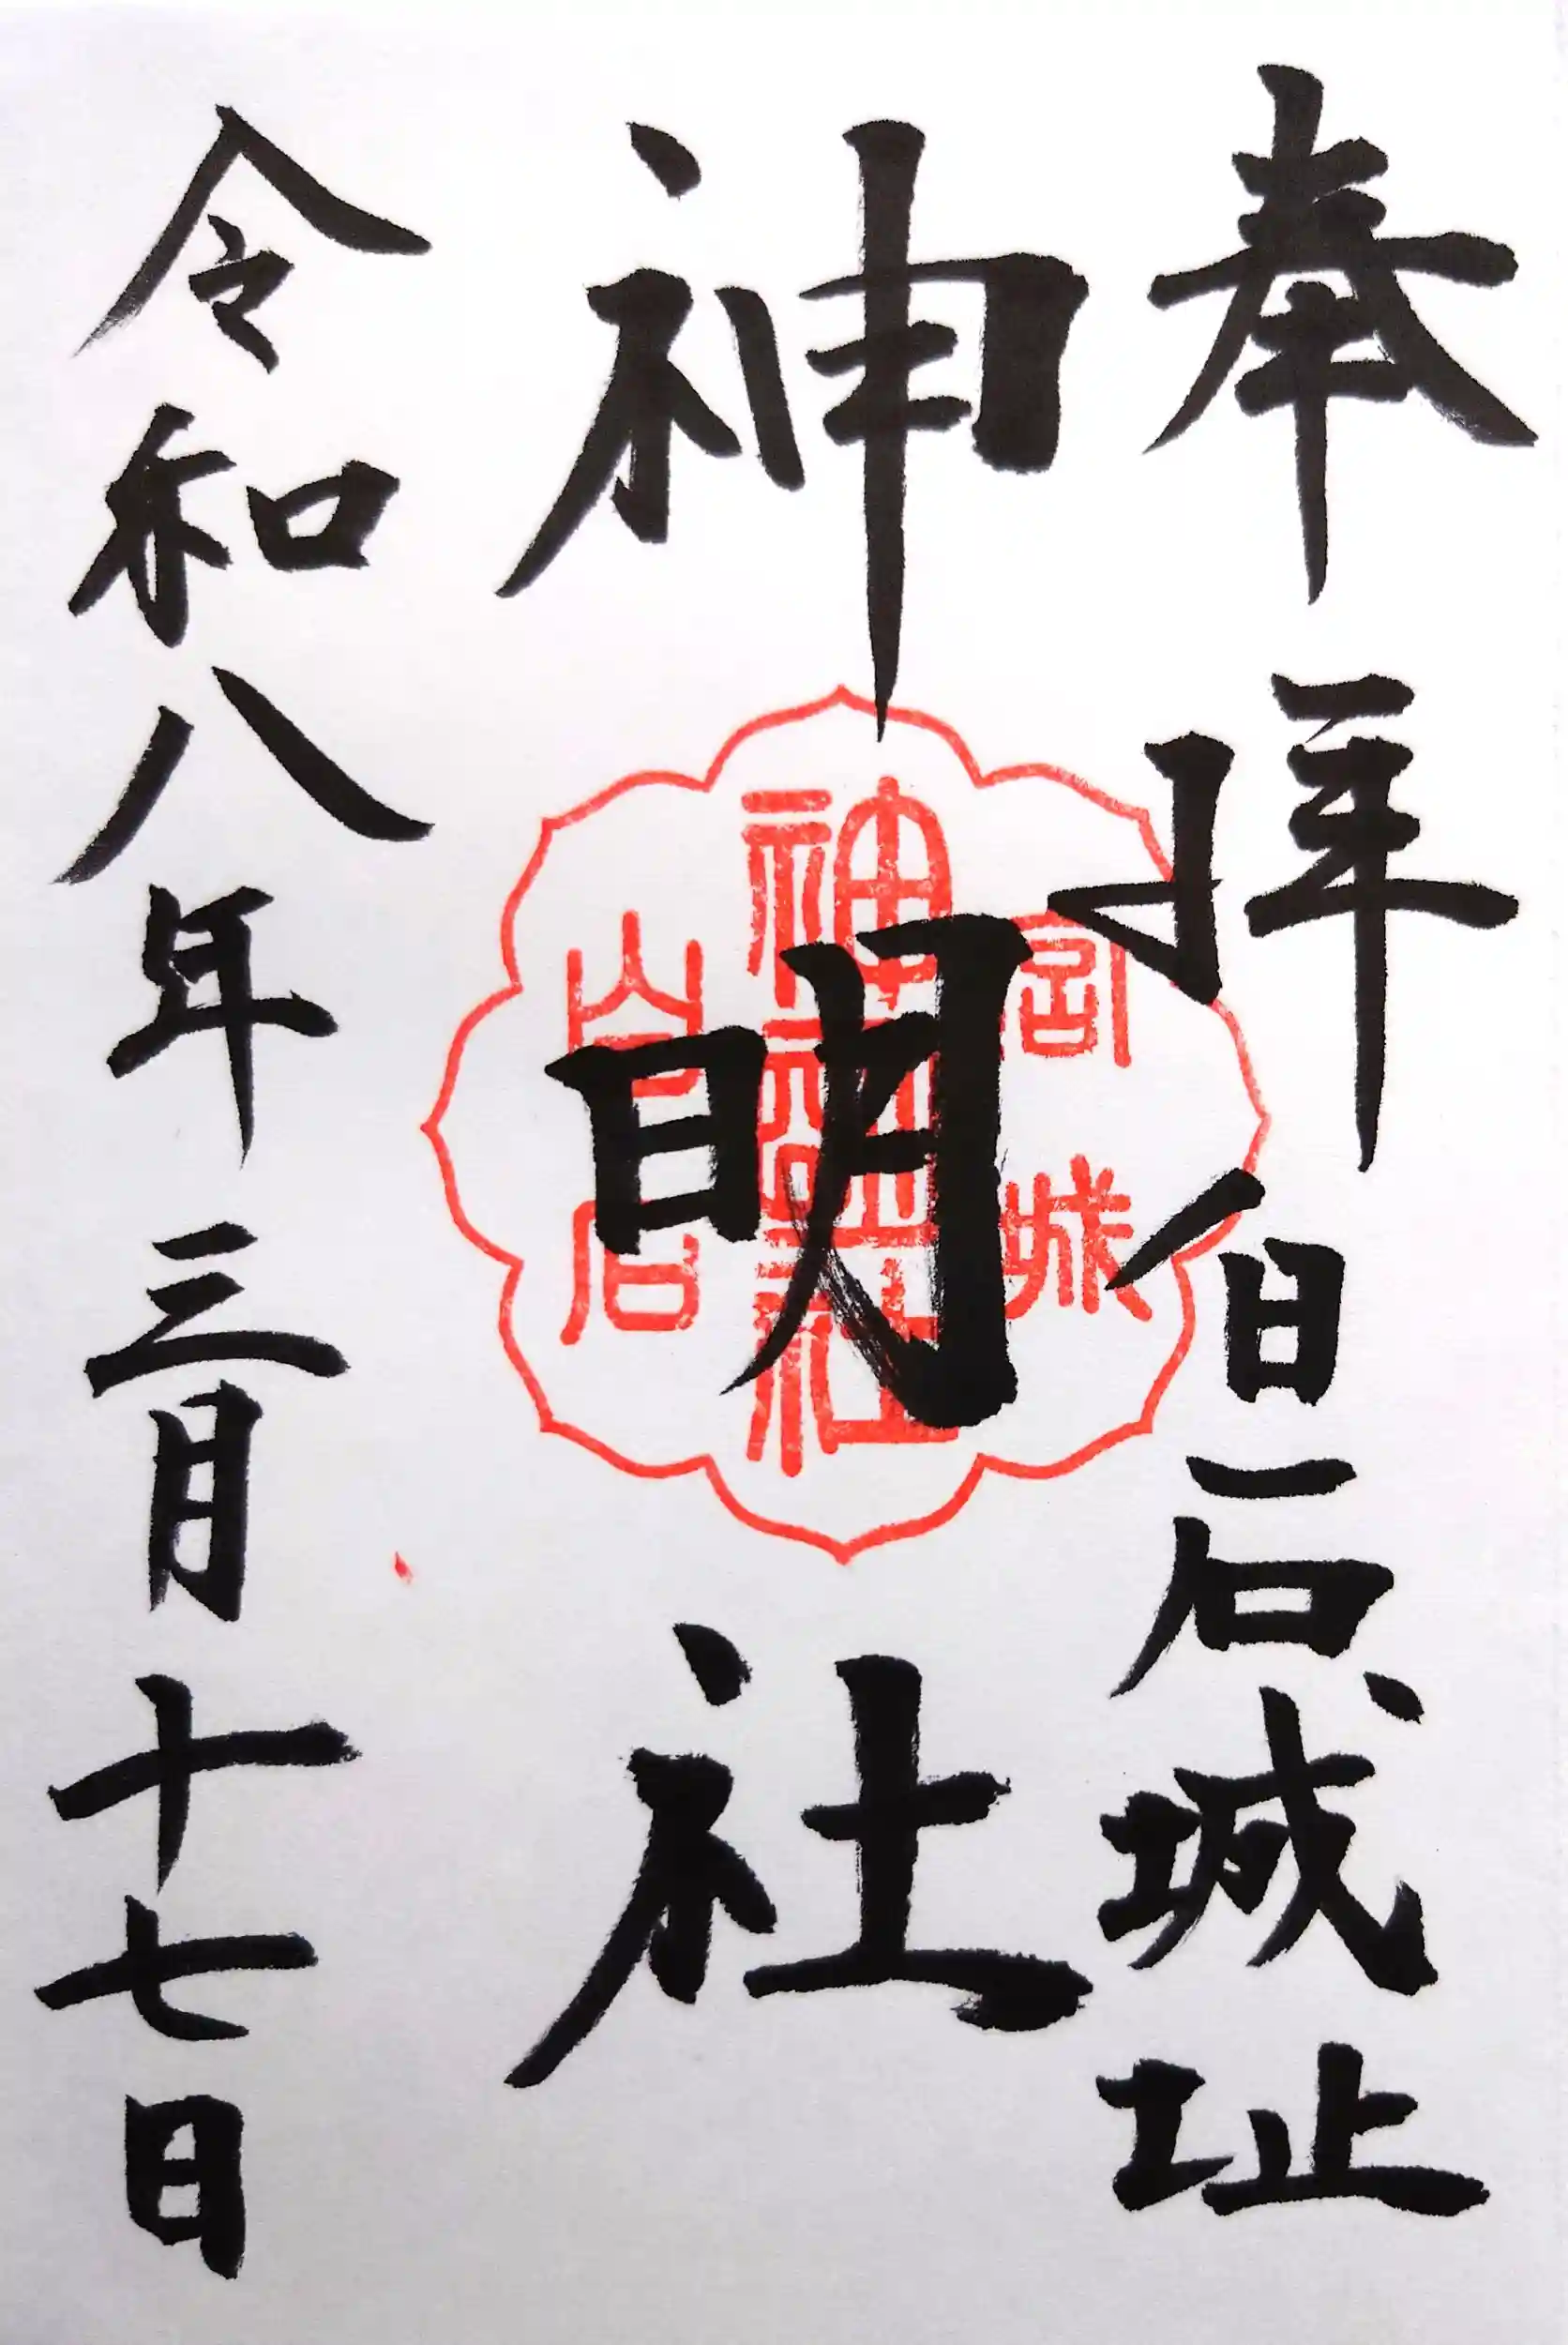 奉拝 白石城址
神明社
令和八年三月十七日
白石
神明社